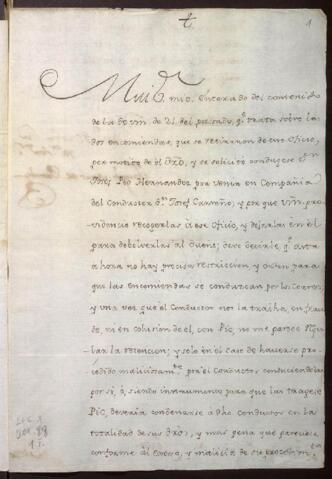 1
Mui S.or mio. Enterado del contenido
de la de vm. de 21. del pasado, q.e trata sobre las
dos encomiendas, que se retiraron de ese Oficio,
por motivo de el dro., y se solicitó condugese dn.
Josef Pio Hernandez por venir en Compañia
del Conductor dn. Josef Carreño, y por que vm. pro
videncio recogerlas à ese Oficio, y dejarlas en el
para debolverlas al Dueño; devo decirle q.e asta
ahora no hay precisa restriccion, y orden para
que las encomiendas se conduzcan por los Correos,
y una vez que el Conductor nos la traiha, en frau
de, ni en colusion de el, con Pio, no me parece Regu
lar la retencion; y solo en el caso de haverse pro
cedido maliciosam.te por el Conductor conduciendolas
por si, ò, siendo instrumento para que las tragese
Pio, deveria condenarse à dho. Conductor en la
totalidad de sus dros., y mas pena que
conforme al exceso, y malicia de su